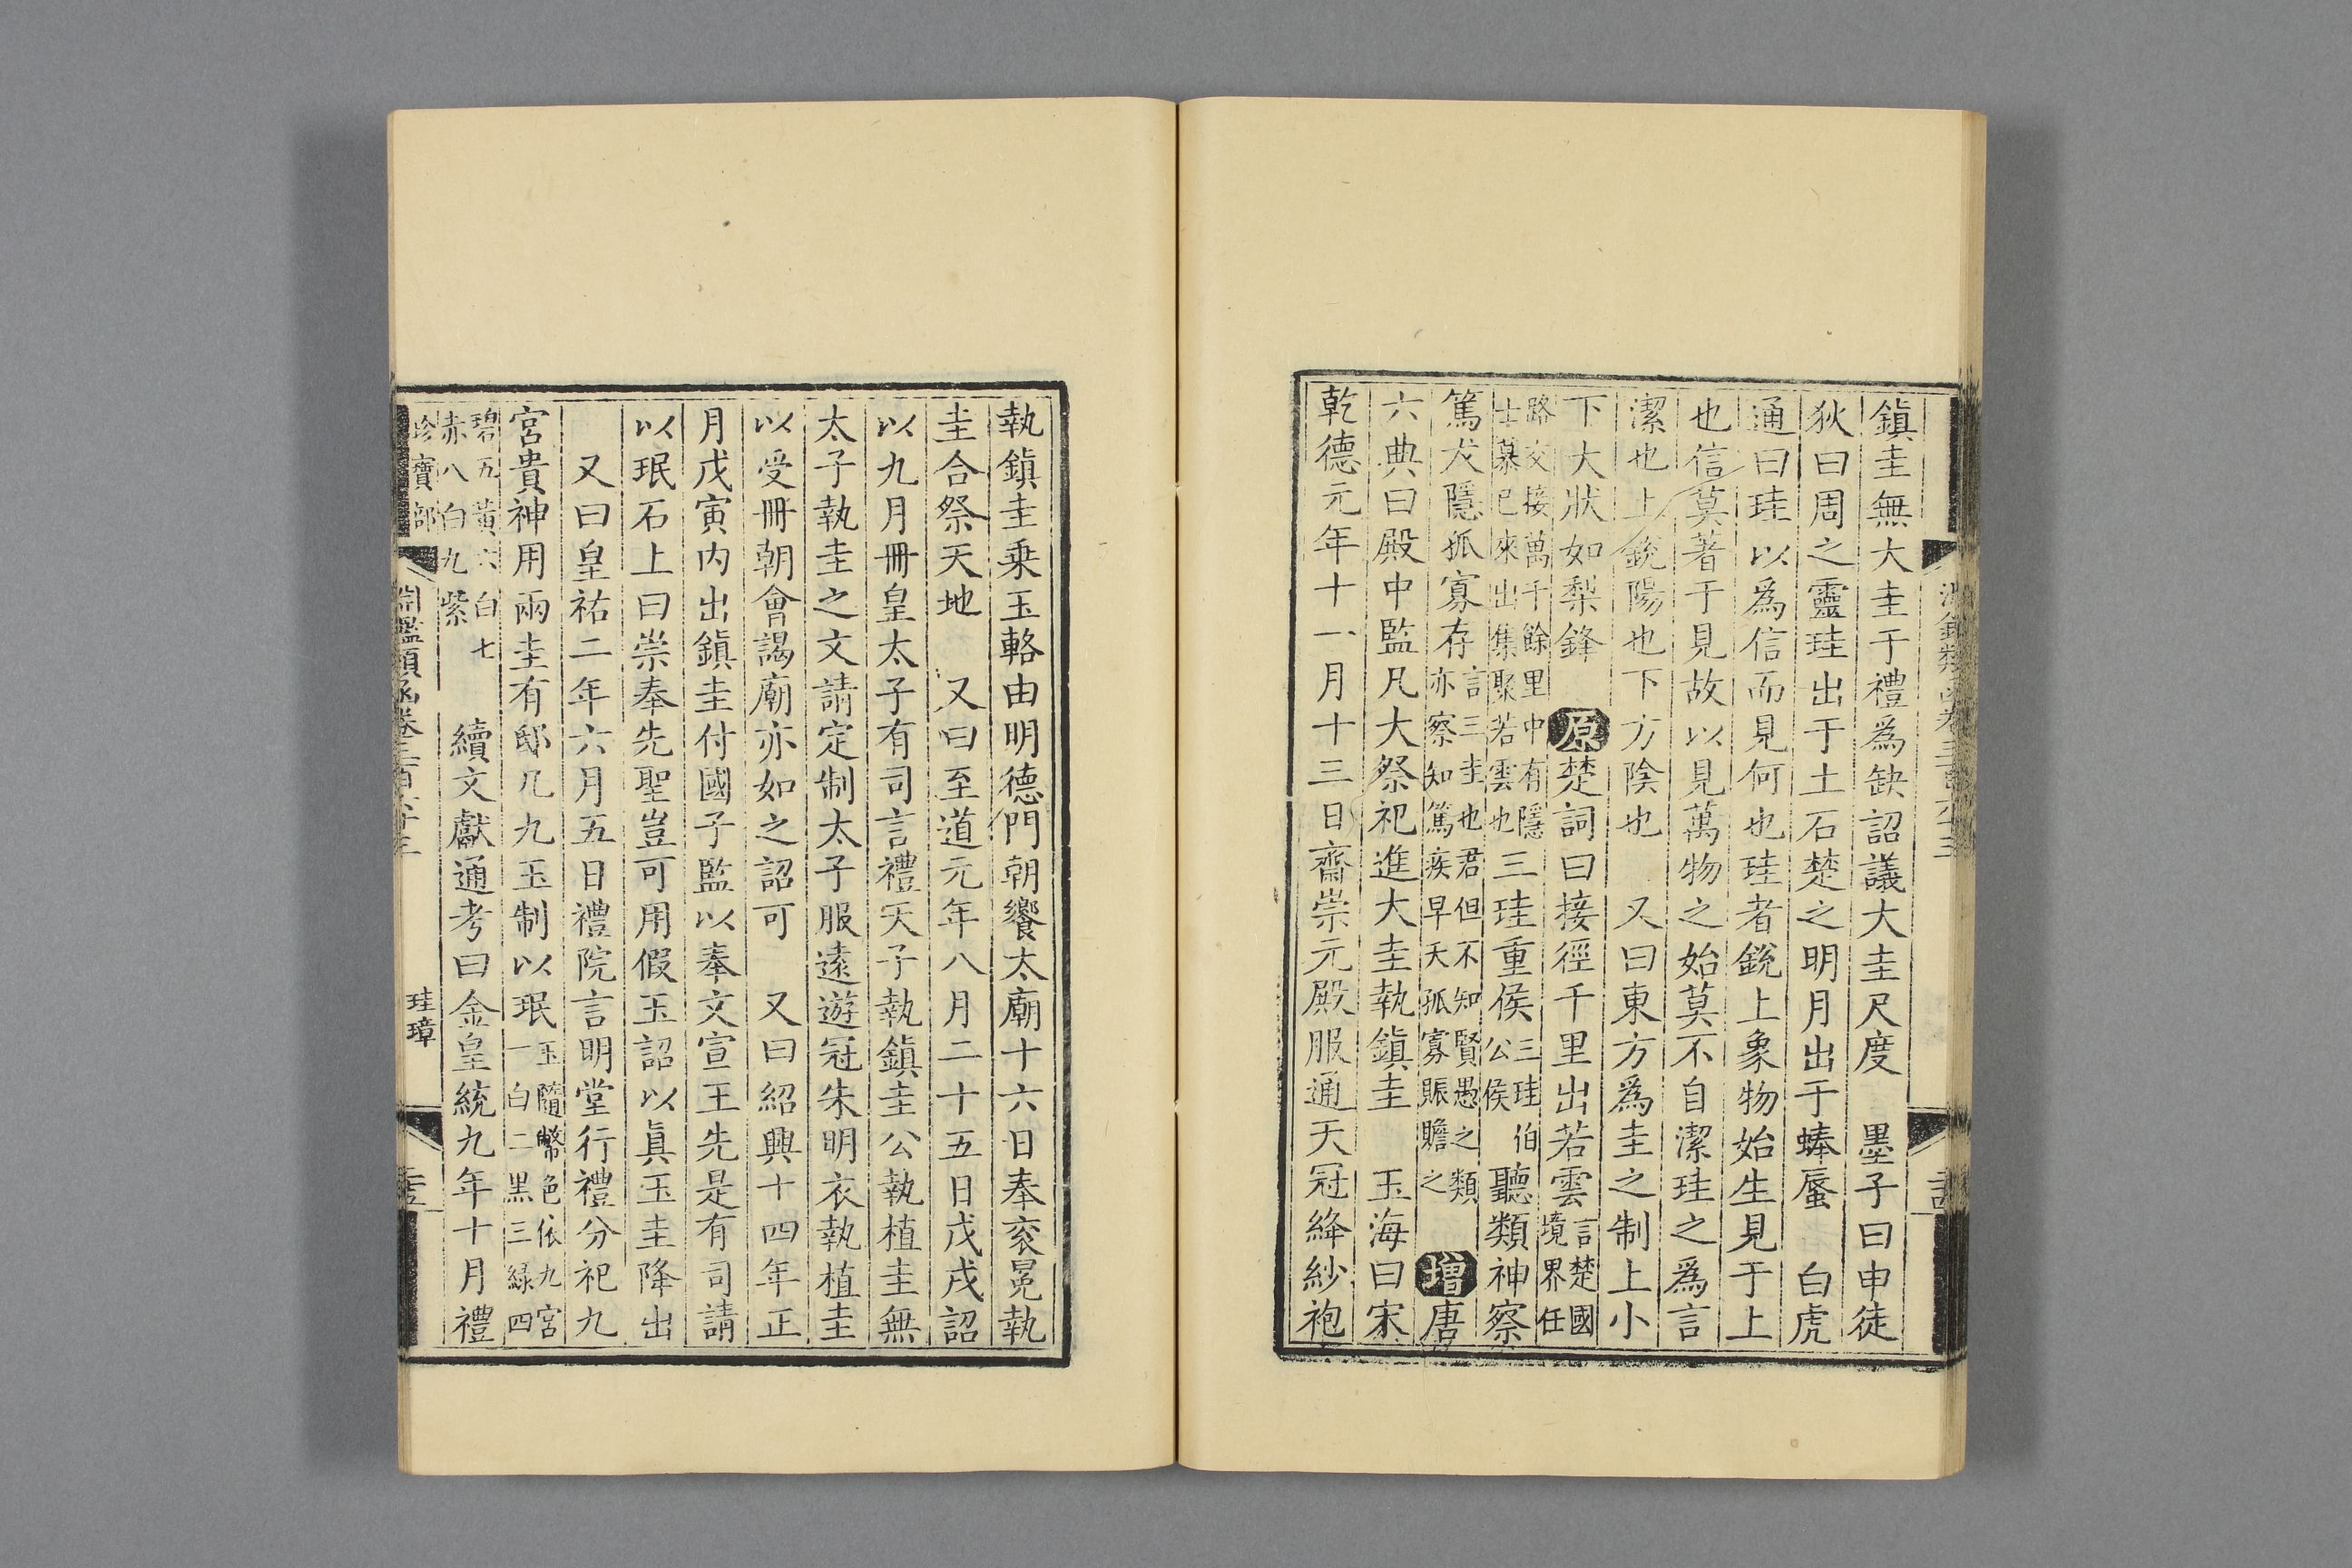 鎮圭無大圭于禮爲缺詔議大圭尺度　墨子曰申徒
狄曰周之靈珪出于土石楚之明月出于蜯蜃　白虎
通曰珪以爲信而見何也珪者銳上象物始生見于上
也信莫著于見故以見萬物之始莫不自潔珪之爲言
潔也上銳陽也下方陰也　又曰東方爲圭之制上小
下大狀如梨鋒　原楚詞曰接徑千里出若雲言楚國境界任
路交接萬千餘里中有隱士慕已來出集聚若雲也三珪重侯三珪伯公侯聽類神察
篤夭隱孤寡存言三圭也君但不知賢愚之類亦察知篤疾早夭孤寡賑贍之　增唐
六典曰殿中監凡大祭祀進大圭執鎮圭　玉海曰宋
乾德元年十一月十三日齋崇元殿服通天冠絳紗袍
執鎮圭乗玉輅由明德門朝饗太廟十六日奉衮冕執
圭合祭天地　又曰至道元年八月二十五日戊戌詔
以九月冊皇太子有司言禮天子執鎮圭公執植圭無
太子執圭之文請定制太子服遠遊冠朱明衣執植圭
以受冊朝會謁廟亦如之詔可　又曰紹興十四年正
月戊寅内出鎮圭付國子監以奉文宣王先是有司請
以珉石上曰崇奉先聖豈可用假玉詔以眞玉圭降出
又曰皇祐二年六月五日禮院言明堂行禮分祀九
宮貴神用兩圭有邸凡九玉制以珉玉隨幣色依九宮一白二黑三綠四
碧五黃六白七赤八白九紫　續文獻通考曰金皇統九年十月禮
珍寶部
淵鑑類函卷三百六十三
珪璋